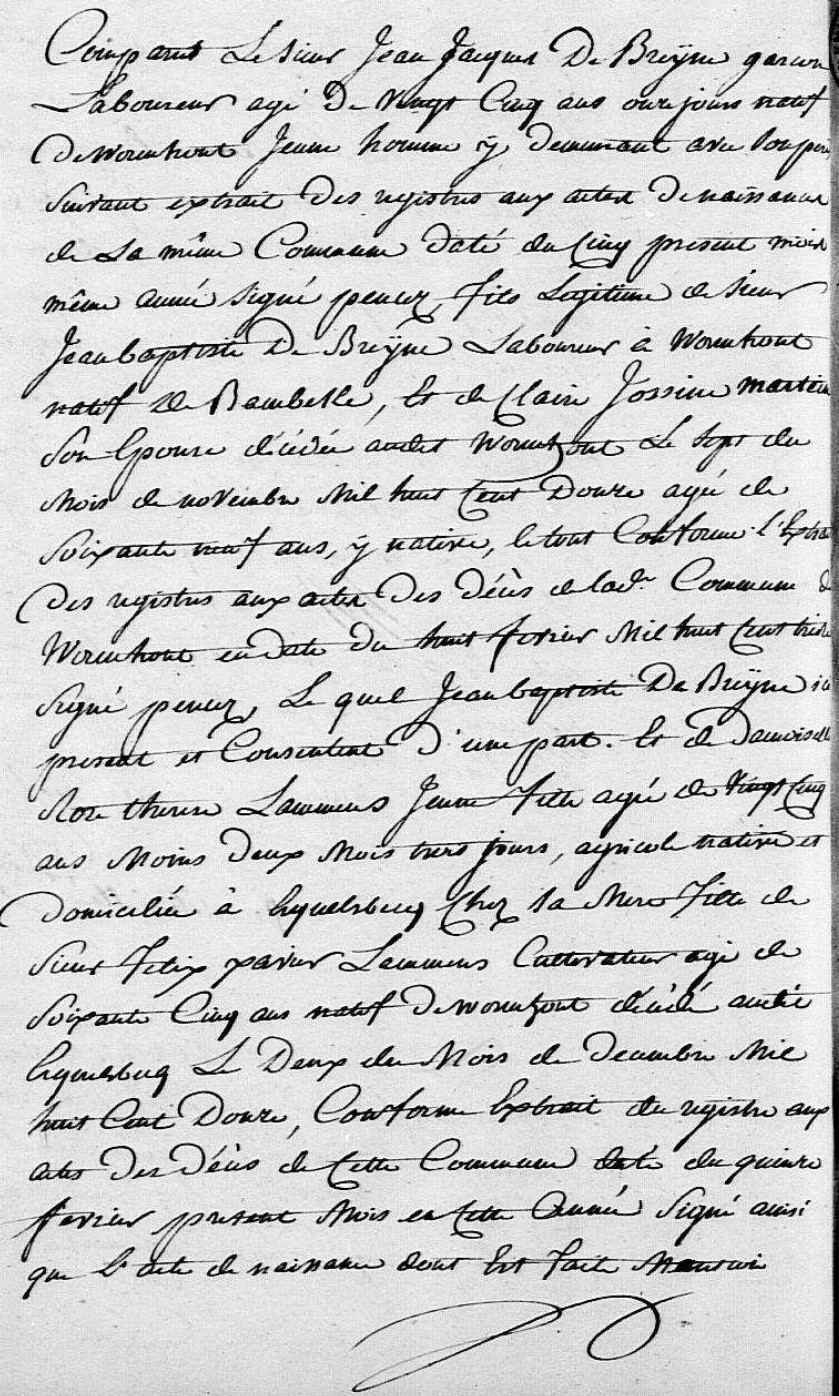 Comparut Le Sieur Jean Jacques De Breÿne garcon
Laboureur agé De Vingt Cinq ans onze jours natif
De wormhout Jeune homme ÿ demeurant avec son pere
suivant extrait des registres aux actes De naissances
de La même Commune daté du Cinq present mois
même année signé peneez, fils Legitime de sieur
Jean baptiste De Breÿne Laboureur à Wormhout
natif De Bambeke, Et de Claire Jossine marteen
Son Epouse décédée audit Wormhout Le sept du
Mois de novembre Mil huit Cent Douze agée de
Soixante neuf ans, ÿ native, le tout Conforme l'Extrait
des registres aux actes Des Décès de lad.e Commune de
Wormhout en date Du huit fevrier Mil huit Cent treize
signé peneez, Le quel Jean baptiste De Breÿne ici
present et Consentent D'une part. Et de Demoiselle
Rose therese Lammens Jeune fille agée de Vingt Cinq
ans Moins Deux Mois trois jours, agricole native et
Domiciliée à Ecquelsbecq Chez sa Mere fille de
Sieur Felix xavier Lammens Cultivateur agé de
Soixante Cinq ans natif De wormhout décédé audit
Ecquelsbecq Le Deux du Mois de Decembre Mil
huit Cent Douze, Conforme Extrait du registre aux
actes Des Décès de Cette Commune daté du quinze
fevrier present Mois en Cette Année signé ainsi
que L'acte de naissance dont Est faite